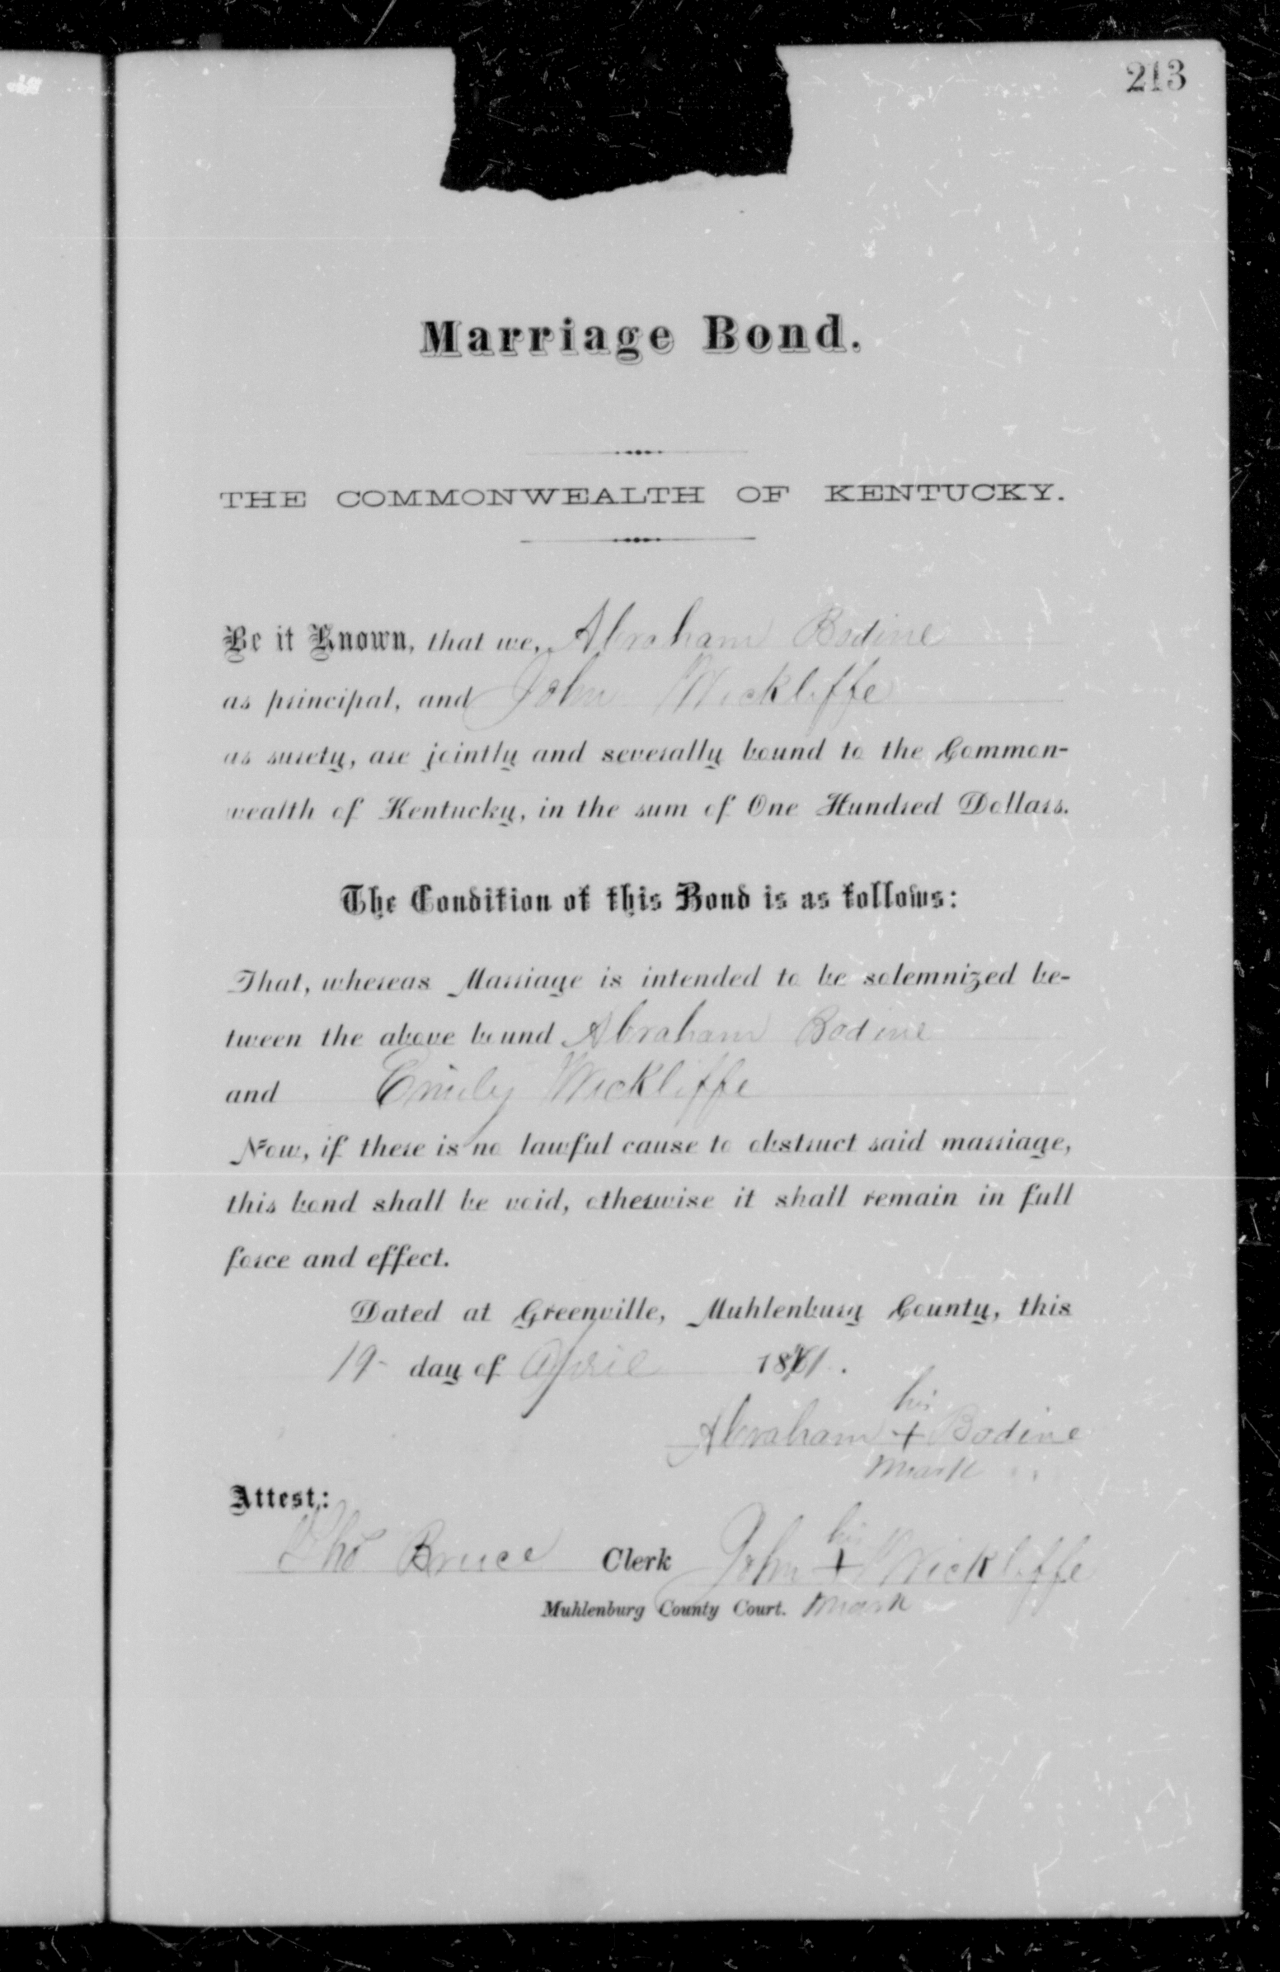 213
Marriage Bond.
THE COMMONWEALTH OF KENTUCKY.
Be it Known, that we, Abraham Bodine
as principal, and John Wickliffe
as surety, are jointly and severally bound to the Common-
wealth of Kentucky, in the sum of One Hundred Dollars.
The Condition of this Bond is as follows:
That, whereas Marriage is intended to be solemnized be-
tween the above bound Abraham Bodine
and Emily Wickliffe
Now, if there is no lawful cause to obstruct said marriage,
this bond shall be void, otherwise it shall remain in full
force and effect.
Dated at Greenville, Muhlenburg County, this
19 day of April
his
Abraham + Bodine
mark
Attest:
his
Tho Bruce Clerk John + Wickliffe
Muhlenburg County Court. mark